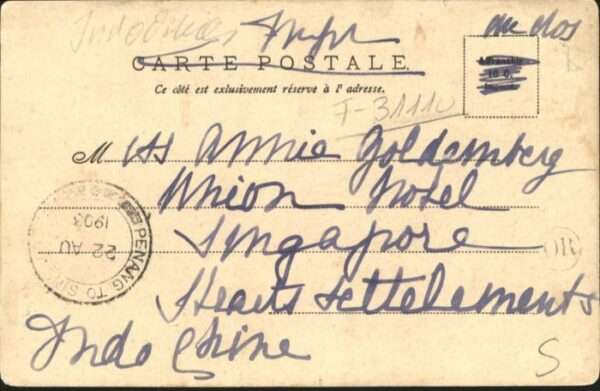 au dos
CARTE POSTALE
Ce côté est exclusivement réservé à l'adresse.
F-31110
M iss Annie Goldenberg
Union Hotel
Singapore
Settelements
Indo Chine
PENANG TO SING
22 AU
1903
OR
S